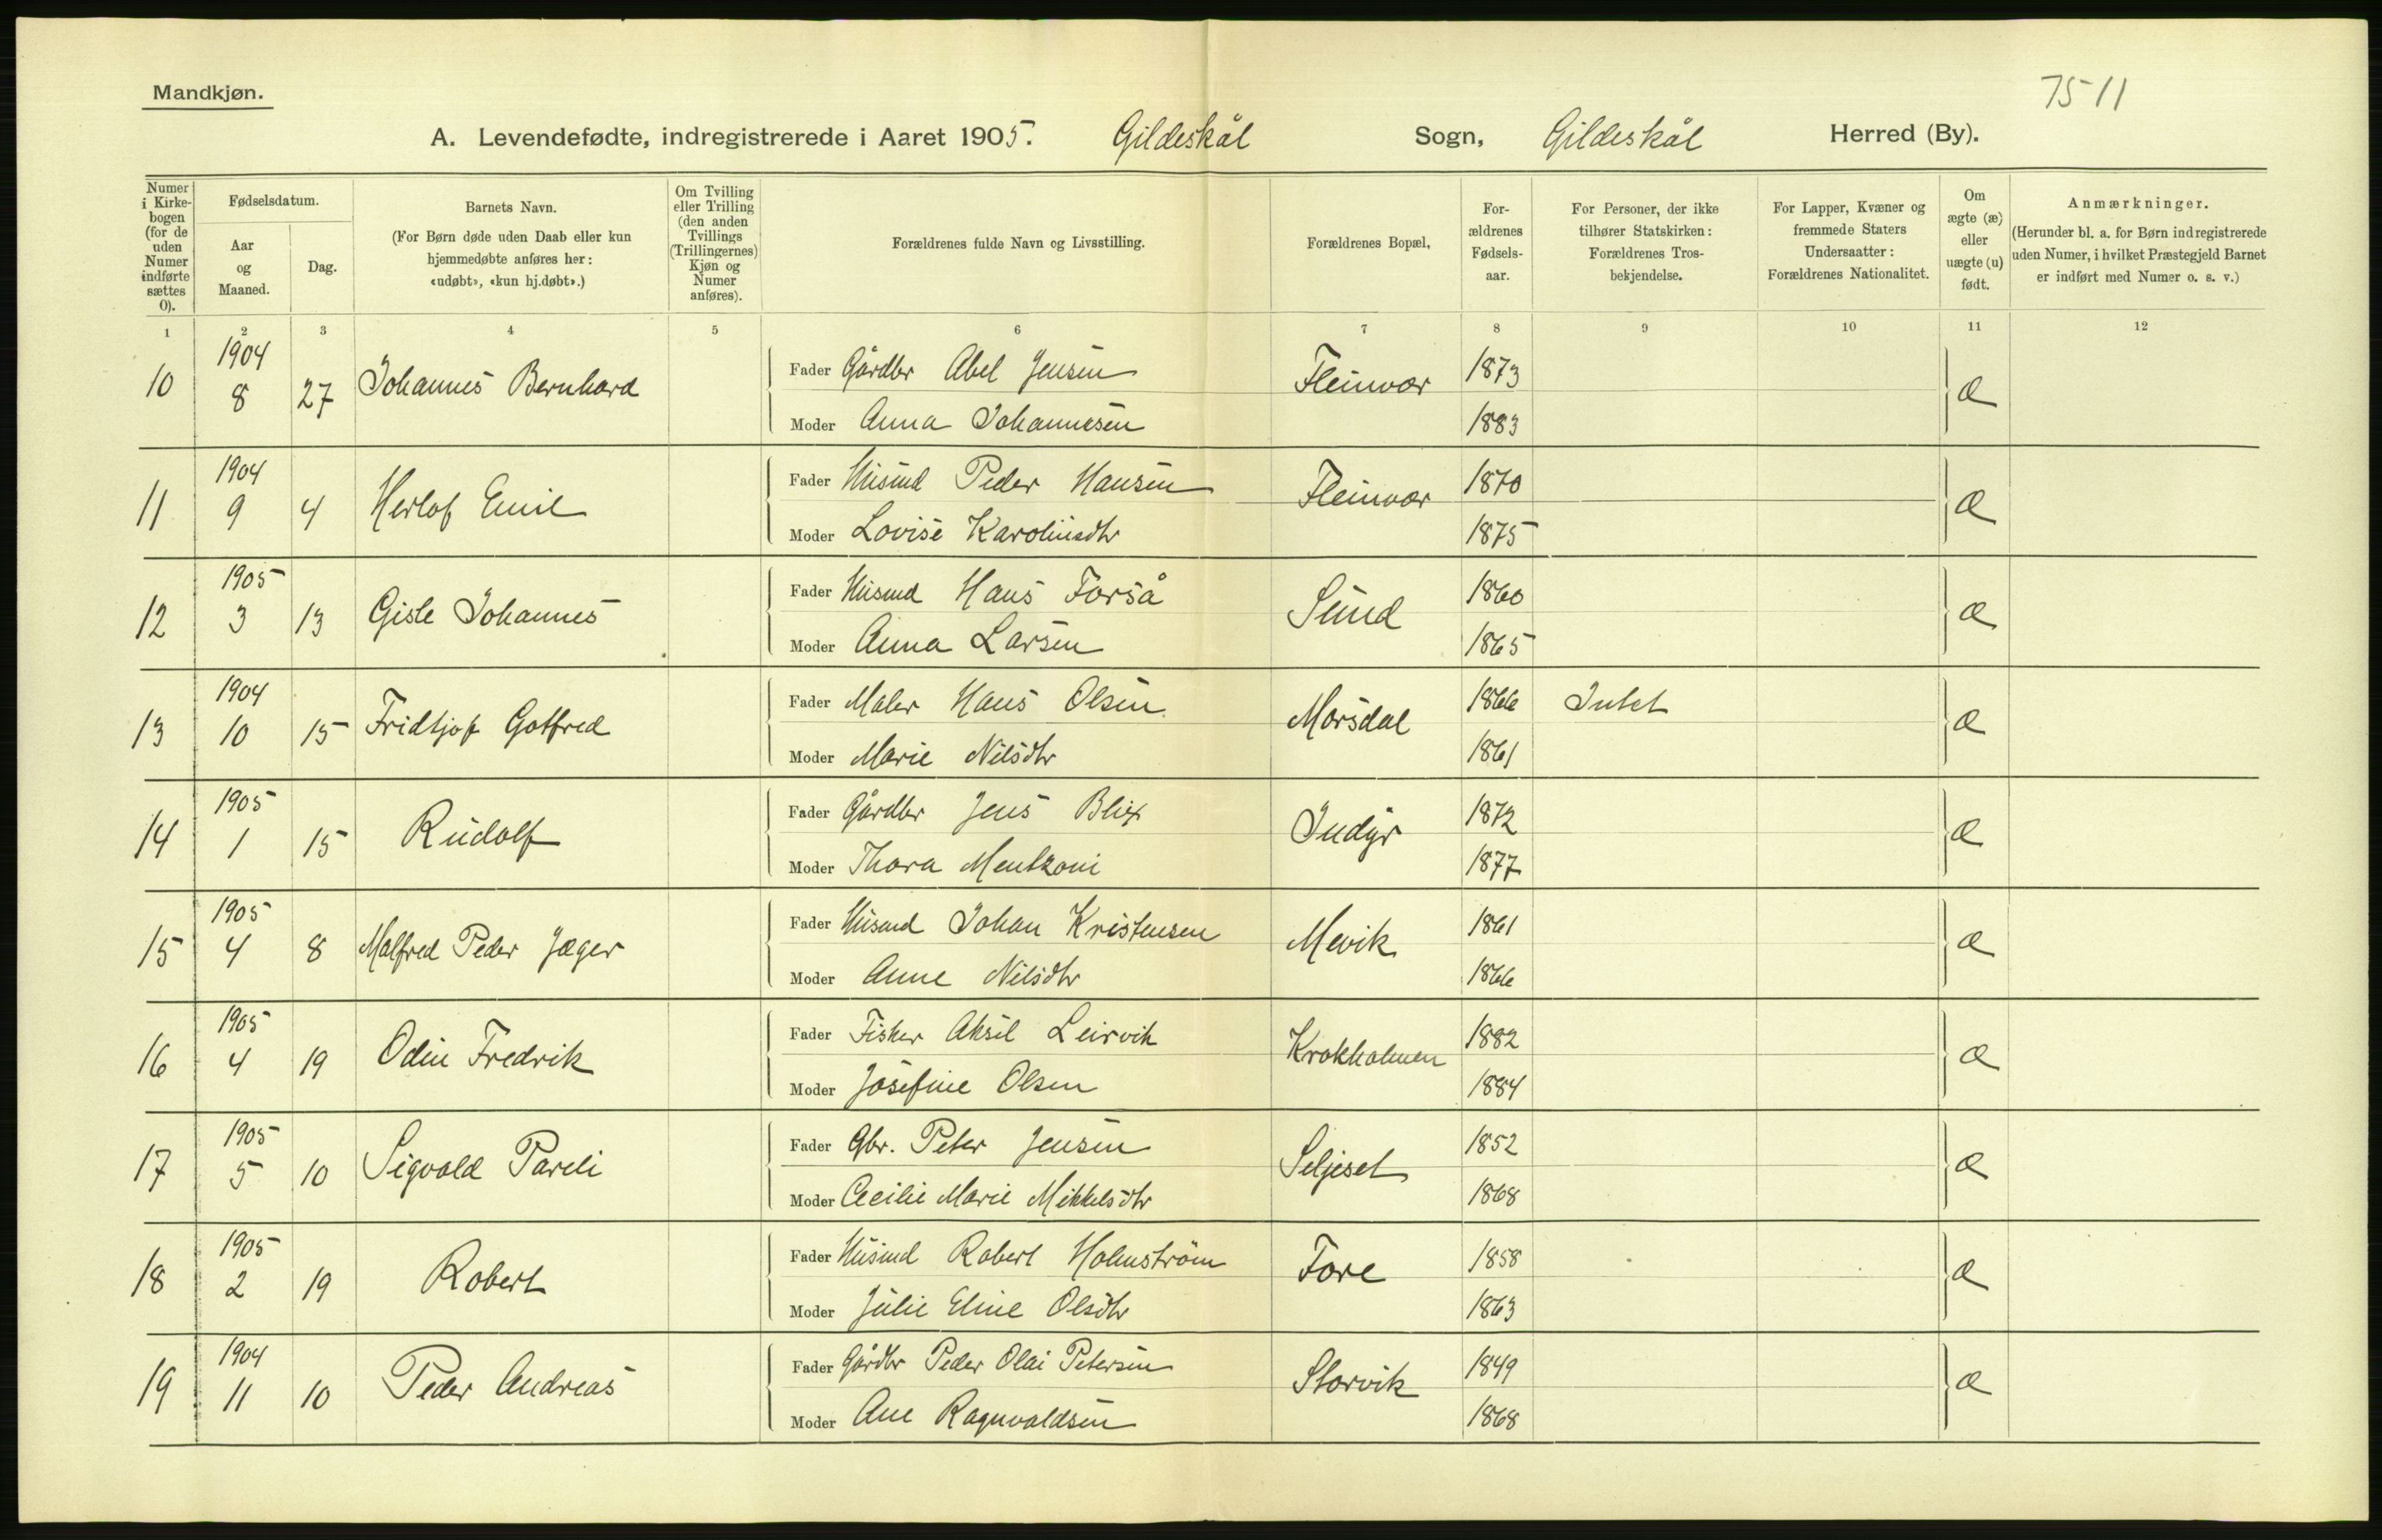 Mandkjøn.
75-11
A. Levendefødte, indregistrerede i Aaret 1905. Gildeskål Sogn, Gildeskål Herred (By).
Numer i Kirkebogen (for de uden Numer indførte sættes 0).
Fødselsdatum.
Aar og Maaned.
Dag.
Barnets Navn.
(For Børn døde uden Daab eller kun hjemmedøbte anføres her: «udøbt», «kun hj.døbt».)
Om Tvilling eller Trilling (den anden Tvillings (Trillingernes) Kjøn og Numer anføres).
Forældrenes fulde Navn og Livsstilling.
Forældrenes Bopæl,
Forældrenes Fødselsaar.
For Personer, der ikke tilhører Statskirken: Forældrenes Trosbekjendelse.
For Lapper, Kvæner og fremmede Staters Undersaatter: Forældrenes Nationalitet.
Om ægte (æ) eller uægte (u) født.
Anmærkninger.
(Herunder bl. a. for Børn indregistrerede uden Numer, i hvilket Præstegjeld Barnet er indført med Numer o. s. v.)
1 2 3 4 5 6 7 8 9 10 11 12
10 1904 8 27 Johannes Bernhard Fader Gårdbr Abel Jensen Fleinvær 1873 æ
Moder Anna Johannesen 1883
11 1904 9 4 Herlof Emil Fader Husmd Peder Hansen Fleinvær 1870 æ
Moder Lovise Karolinsdtr 1875
12 1905 3 13 Gisle Johannes Fader Husmd Hans Forså Sund 1860 æ
Moder Anna Larsen 1865
13 1904 10 15 Fridtjof Gotfred Fader Maler Hans Olsen Morsdal 1866 Intet æ
Moder Marie Nilsdtr 1861
14 1905 1 15 Rudolf Fader Gårdbr Jens Blix Indyr 1872 æ
Moder Thora Mentzoni 1877
15 1905 4 8 Malfred Peder Jæger Fader Husmd Johan Kristensen Mevik 1861 æ
Moder Anne Nilsdtr 1866
16 1905 4 19 Odin Fredrik Fader Fisker Aksel Leirvik Krokholmen 1882 æ
Moder Josefine Olsen 1884
17 1905 5 10 Sigvald Pareli Fader Gbr. Peter Jensen Seljeset 1852 æ
Moder Cecilie Marie Mikkelsdtr 1868
18 1905 2 19 Robert Fader Husmd Robert Holmström Fore 1858 æ
Moder Julie Eline Olsdtr 1863
19 1904 11 10 Peder Andreas Fader Gårdbr Peder Olai Petersen Storvik 1849 æ
Moder Ane Ragnvaldsen 1868